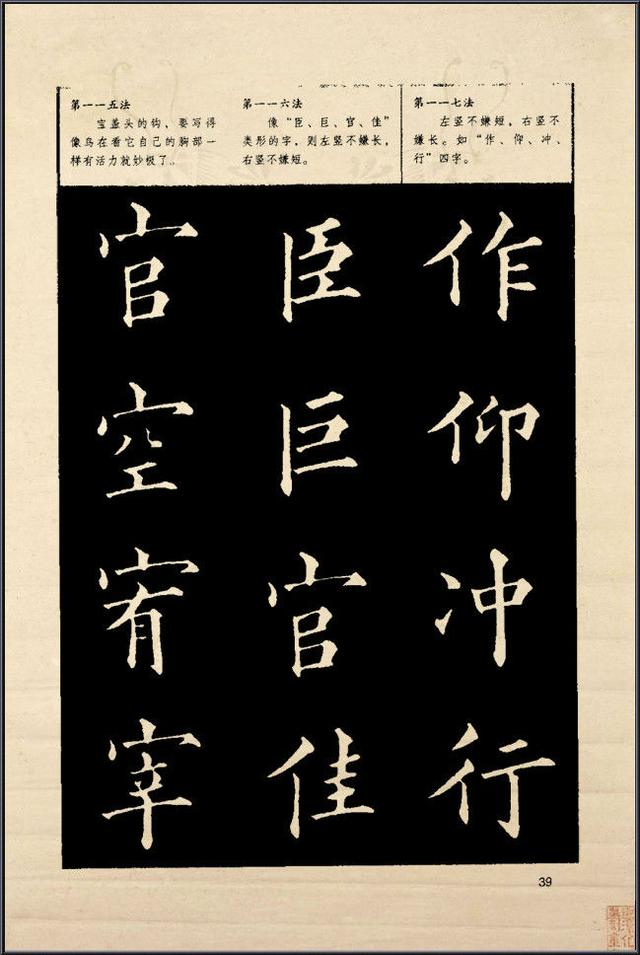 第一一五法
宝盖头的钩，要写得
像鸟在看它自己的胸部一
样有活力就妙极了。
第一一六法
像“臣、巨、官、佳”
类形的字，则左竖不嫌长，
右竖不嫌短。
第一一七法
左竖不嫌短，右竖不
嫌长。如“作、仰、冲、
行”四字。
官 臣 作
空 巨 仰
宥 官 冲
宰 佳 行
39